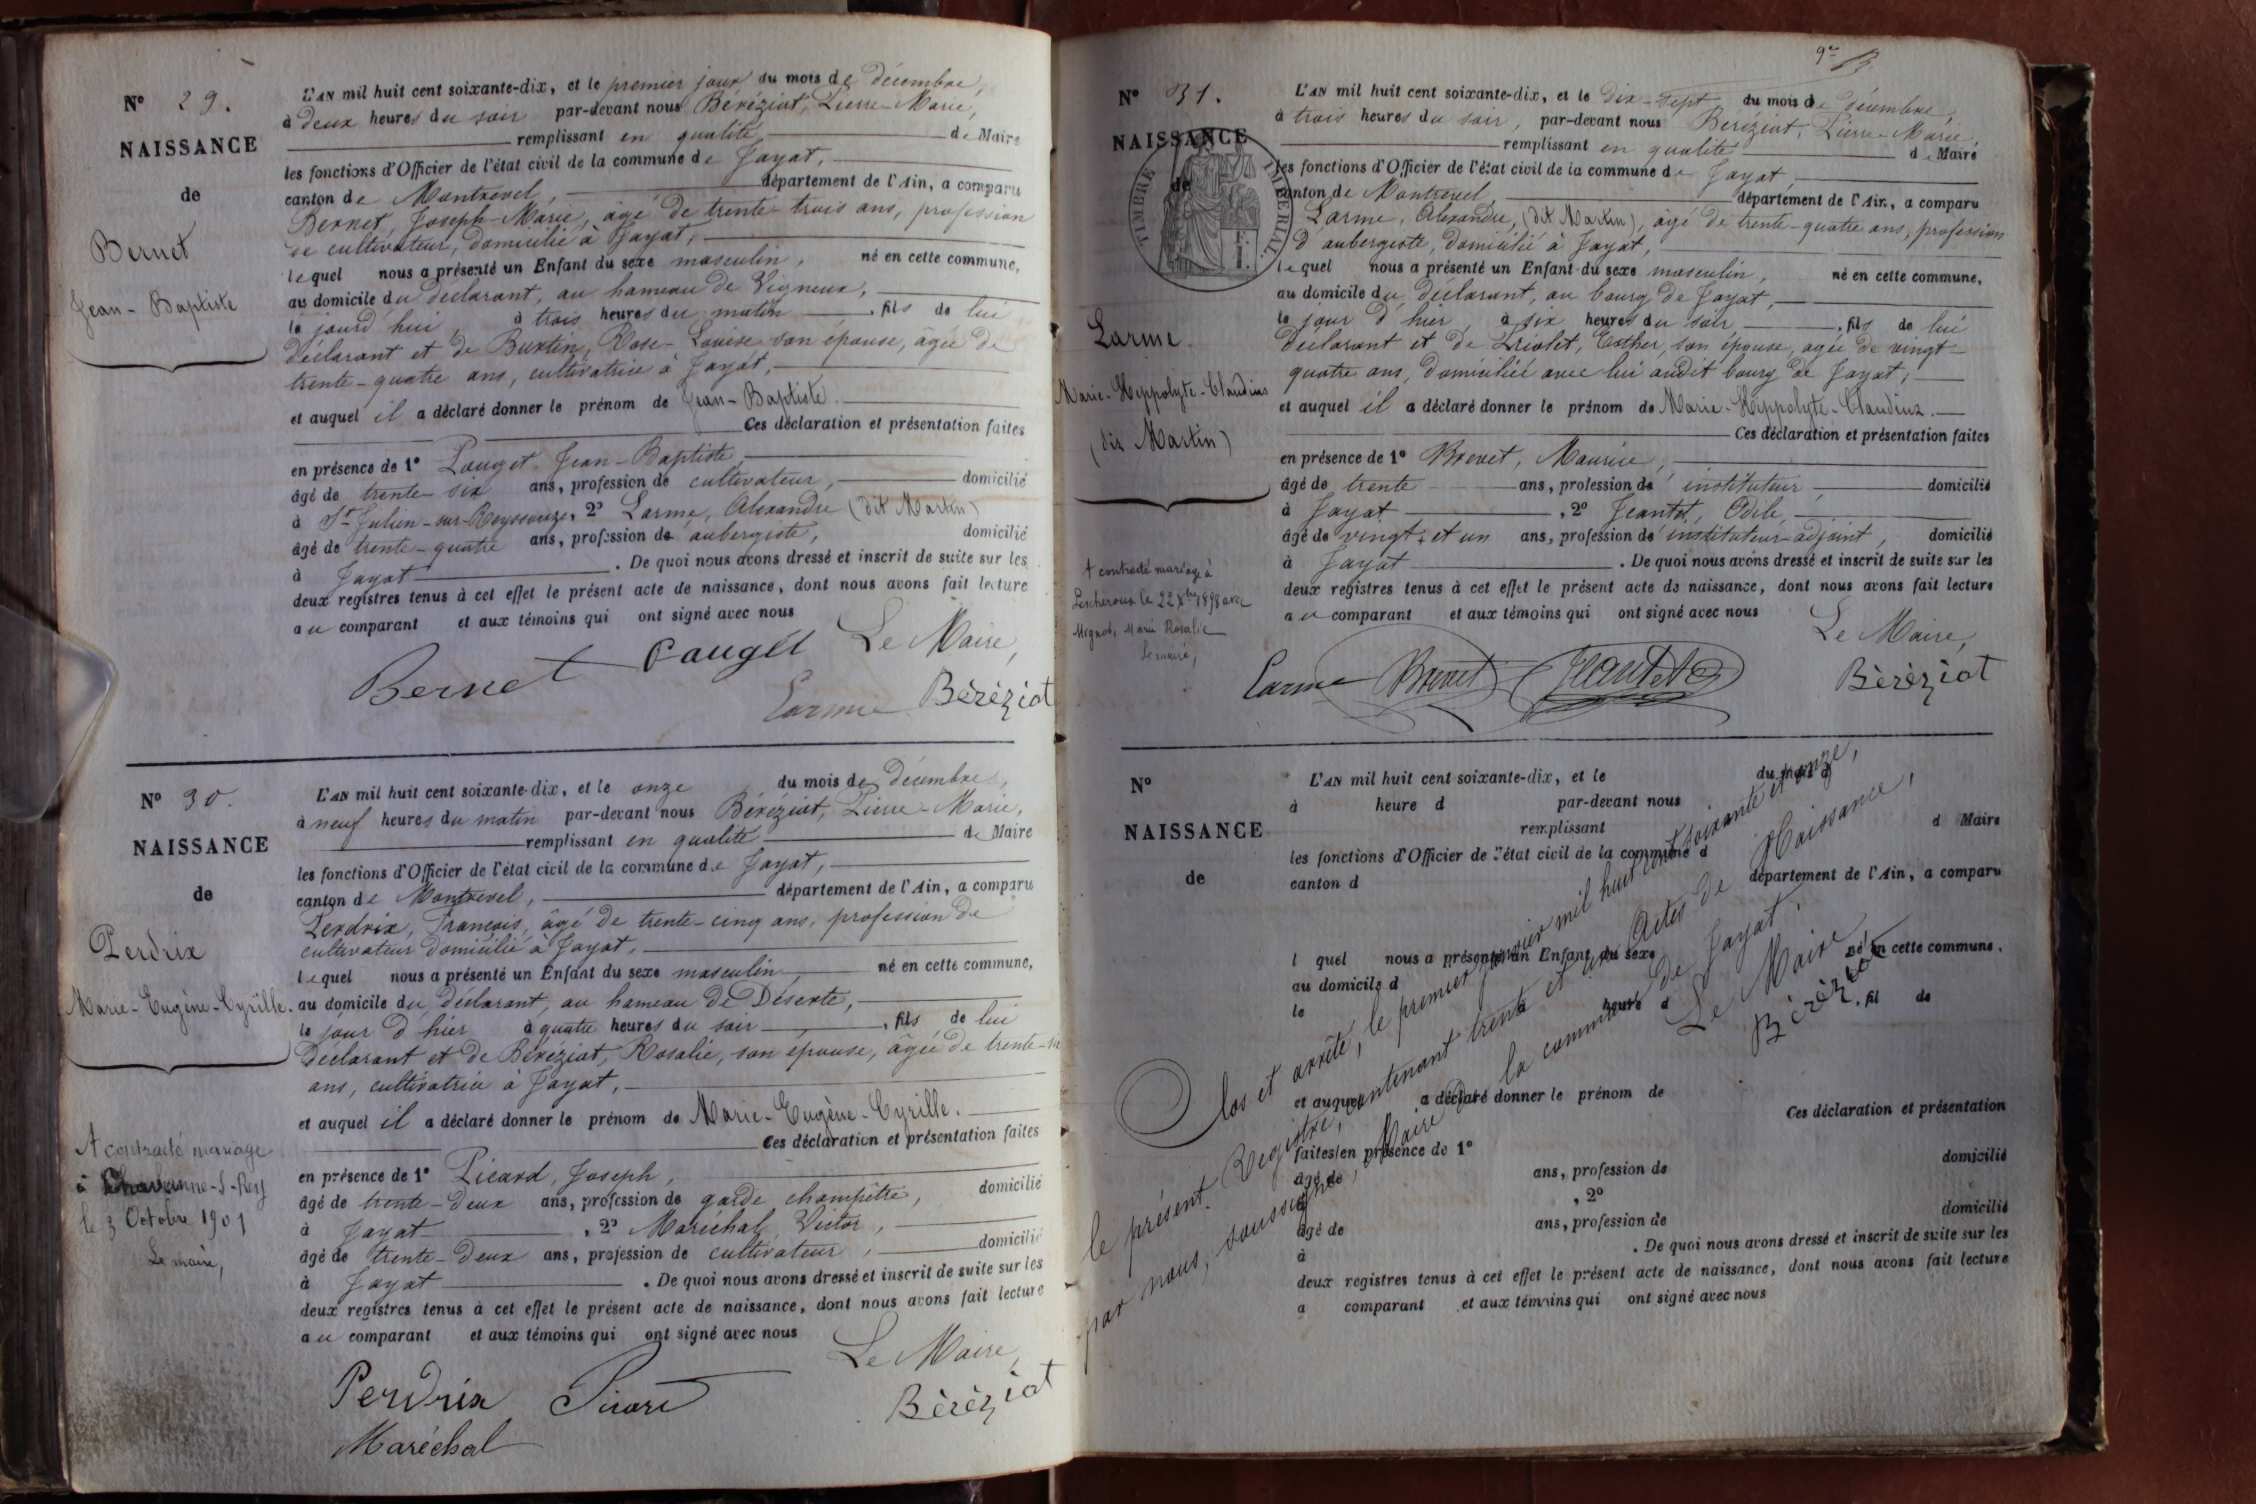 N° 29.
NAISSANCE
de
Bernet
Jean-Baptiste
L'AN mil huit cent soixante-dix, et le premier jour du mois de décembre,
à deux heures du soir par-devant nous Béréziat, Pierre-Marie,
remplissant en qualité de Maire
les fonctions d'Officier de l'état civil de la commune de Jayat,
canton de Montrevel, département de l'Ain, a comparu
Bernet, Joseph-Marie, âgé de trente-trois ans, profession
de cultivateur, domicilié à Jayat,
lequel nous a présenté un Enfant du sexe masculin, né en cette commune,
au domicile du déclarant, au hameau de Vigneux,
le jourd'hui, à trois heures du matin, fils de lui
déclarant et de Buxtin, Rose-Louise son épouse, âgée de
trente-quatre ans, cultivatrice à Jayat,
et auquel il a déclaré donner le prénom de Jean-Baptiste.
Ces déclaration et présentation faites
en présence de 1° Pauget, Jean-Baptiste
âgé de trente-six ans, profession de cultivateur, domicilié
à St Julien-sur-Reyssouze, 2° Larme, Alexandre (dit Martin)
âgé de trente-quatre ans, profession de aubergiste, domicilié
à Jayat. De quoi nous avons dressé et inscrit de suite sur les
deux registres tenus à cet effet le présent acte de naissance, dont nous avons fait lecture
au comparant et aux témoins qui ont signé avec nous
Le Maire,
Bernet Pauget
Larme Béréziat
N° 30.
NAISSANCE
de
Perdrix
Marie-Eugène-Cyrille.
A contracté mariage
à -S-Rey
le 3 Octobre 1901
Le maire,
L'AN mil huit cent soixante-dix, et le onze du mois de décembre,
à neuf heures du matin par-devant nous Béréziat, Pierre-Marie,
remplissant en qualité de Maire
les fonctions d'Officier de l'état civil de la commune de Jayat,
canton de Montrevel, département de l'Ain, a comparu
Perdrix, François, âgé de trente-cinq ans, profession de
cultivateur domicilié à Jayat,
lequel nous a présenté un Enfant du sexe masculin, né en cette commune,
au domicile du déclarant, au hameau de Déserte,
le jour d'hier à quatre heures du soir, fils de lui
déclarant et de Béréziat, Rosalie, son épouse, âgée de trente-six
ans, cultivatrice à Jayat,
et auquel il a déclaré donner le prénom de Marie-Eugène-Cyrille.
Ces déclaration et présentation faites
en présence de 1° Picard, Joseph,
âgé de trente-deux ans, profession de garde champêtre, domicilié
à Jayat, 2° Maréchal, Victor,
âgé de trente-deux ans, profession de cultivateur, domicilié
à Jayat. De quoi nous avons dressé et inscrit de suite sur les
deux registres tenus à cet effet le présent acte de naissance, dont nous avons fait lecture
au comparant et aux témoins qui ont signé avec nous
Le Maire,
Perdrix Picard Béréziat
Maréchal
9e
N° 31.
NAISSANCE
de
TIMBRE IMPERIAL
Larme
Marie-Hippolyte-Claudius
(dit Martin)
A contracté mariage à
Lescheroux le 22 Xbre 1898 avec
Mignot, Marie Rosalie
Le maire,
L'AN mil huit cent soixante-dix, et le dix-sept du mois de décembre,
à trois heures du soir, par-devant nous Béréziat, Pierre-Marie
remplissant en qualité de Maire
les fonctions d'Officier de l'état civil de la commune de Jayat,
canton de Montrevel, département de l'Ain, a comparu
Larme, Alexandre, (dit Martin), âgé de trente-quatre ans, profession
d'aubergiste, domicilié à Jayat,
lequel nous a présenté un Enfant du sexe masculin, né en cette commune,
au domicile du déclarant, au bourg de Jayat,
le jour d'hier, à six heures du soir, fils de lui
déclarant et de Griolet, Esther, son épouse, âgée de vingt-
quatre ans, domiciliée avec lui audit bourg de Jayat,
et auquel il a déclaré donner le prénom de Marie-Hippolyte-Claudius.
Ces déclaration et présentation faites
en présence de 1° Brevet, Maurice,
âgé de trente ans, profession d'instituteur, domicilié
à Jayat, 2° Jeantet, Odile
âgé de vingt et un ans, profession d'instituteur-adjoint, domicilié
à Jayat. De quoi nous avons dressé et inscrit de suite sur les
deux registres tenus à cet effet le présent acte de naissance, dont nous avons fait lecture
au comparant et aux témoins qui ont signé avec nous
Le Maire,
Larme Brevet Jeantet Béréziat
N°
NAISSANCE
de
L'AN mil huit cent soixante-dix, et le du mois d
à heure d par-devant nous
remplissant d Maire
les fonctions d'Officier de l'état civil de la commune d
canton d département de l'Ain, a comparu
l quel nous a présenté un Enfant du sexe né en cette commune,
au domicile d
le à heure d , fil de
et auquel a déclaré donner le prénom de
Ces déclaration et présentation
faites en présence de 1°
âgé de ans, profession de domicilié
à , 2°
âgé de ans, profession de domicilié
à . De quoi nous avons dressé et inscrit de suite sur les
deux registres tenus à cet effet le présent acte de naissance, dont nous avons fait lecture
a comparant et aux témoins qui ont signé avec nous
Clos et arrêté, le premier janvier mil huit cent soixante et onze,
le présent Registre, contenant trente et un Actes de Naissance,
par nous, soussigné, Maire de la commune de Jayat.
Le Maire
Béréziat